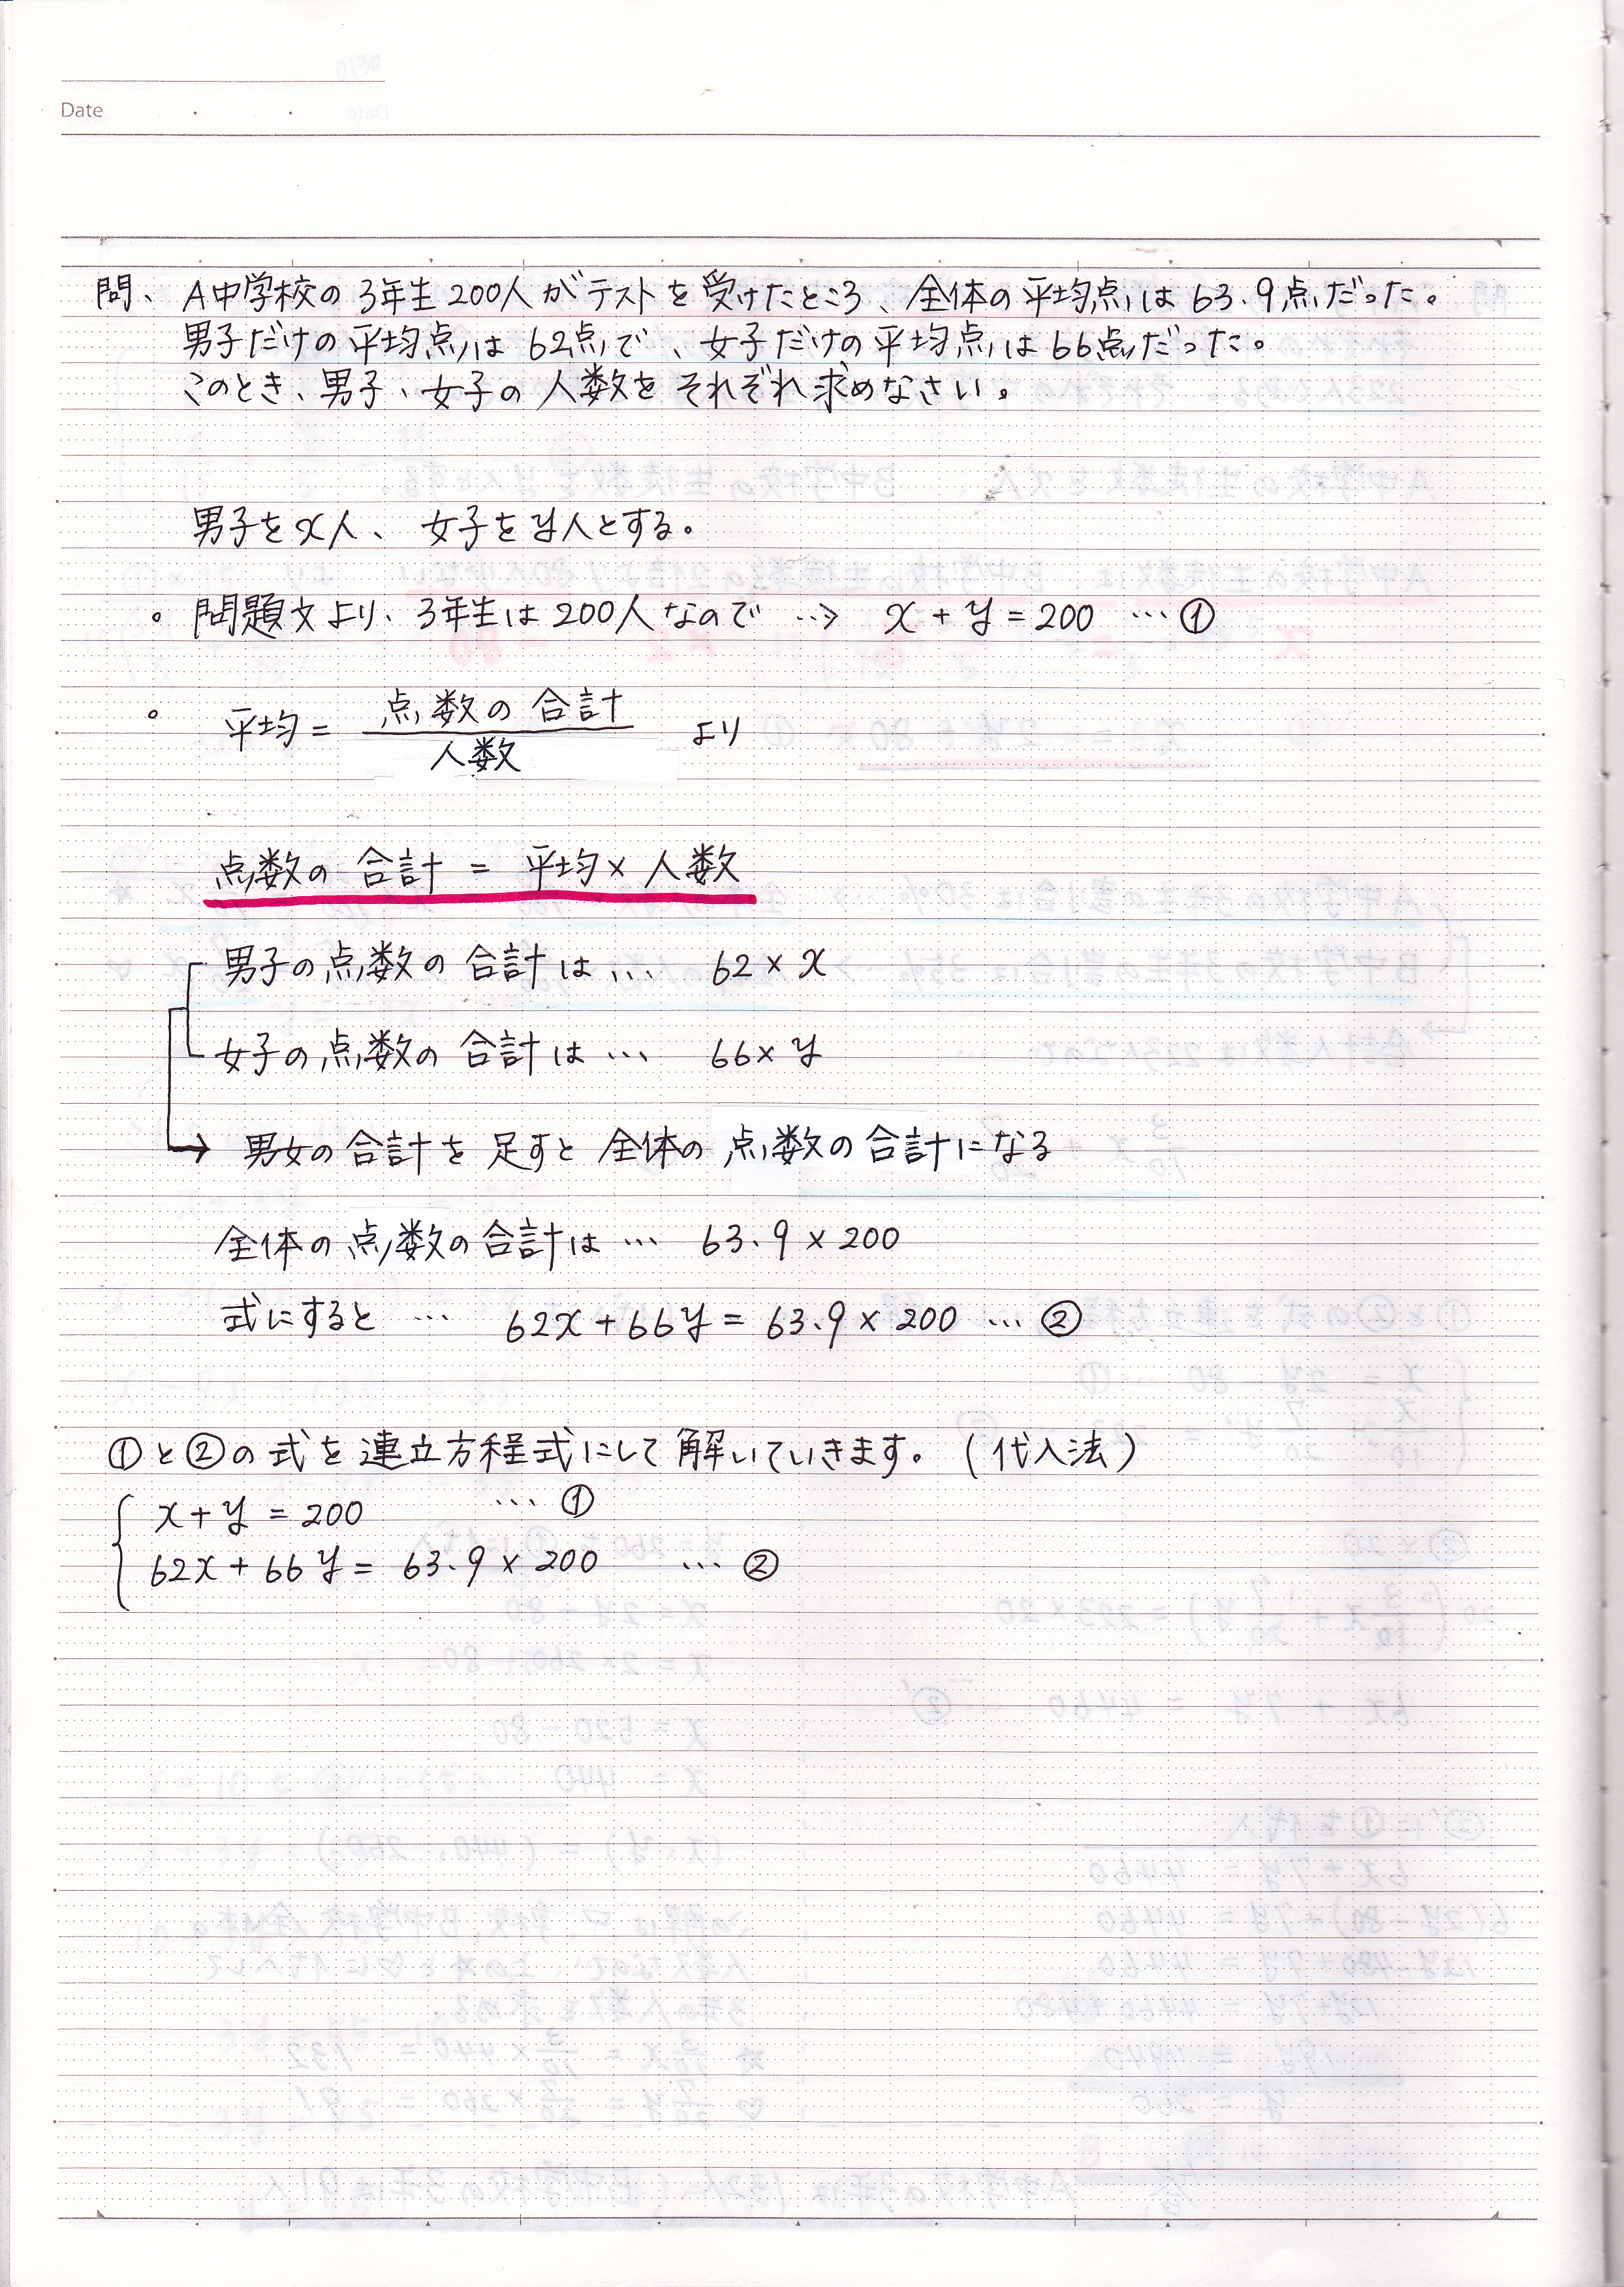 Date
問、A中学校の3年生200人がテストを受けたところ、全体の平均点は63.9点だった。
男子だけの平均点は62点で、女子だけの平均点は66点だった。
このとき、男子、女子の人数をそれぞれ求めなさい。
男子をx人、女子をy人とする。
。問題文より、3年生は200人なので …> x + y = 200 … ①
。平均 = 点数の合計 / 人数 より
点数の合計 = 平均 × 人数
男子の点数の合計は… 62 × x
女子の点数の合計は… 66 × y
→ 男女の合計を足すと全体の点数の合計になる
全体の点数の合計は… 63.9 × 200
式にすると … 62x + 66y = 63.9 × 200 … ②
①と②の式を連立方程式にして解いていきます。(代入法)
x + y = 200 … ①
62x + 66y = 63.9 × 200 … ②